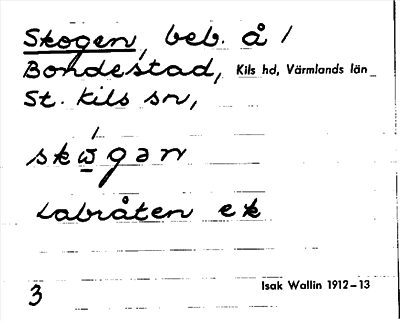 Skogen, beb. å /
Bondestad, Kils hd, Värmlands län
St. Kils sn,
skώ̲gən
Labråten ek
3 Isak Wallin 1912–13